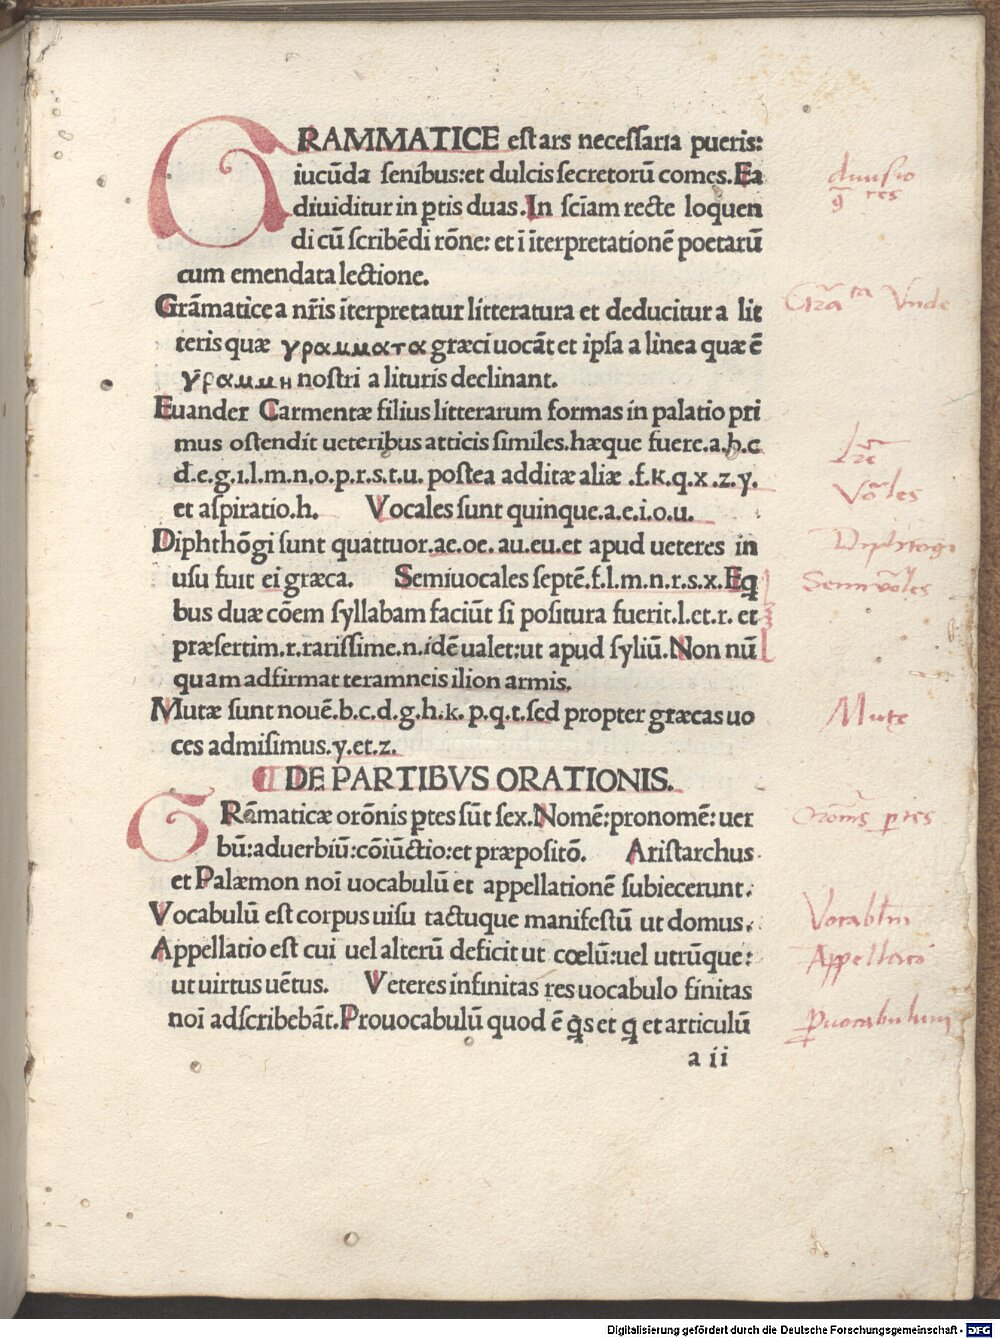 GRAMMATICE est ars necessaria pueris:
iucūda senibus:et dulcis secretorū comes.Ea
diuiditur in ꝑtis duas.In sciam recte loquen
di cū scribēdi rōne: et ī īterpretationē poetarū
cum emendata lectione.
Grāmatice a nr̄is īterpretatur litteratura et deducitur a lit
teris quæ γραμματα græci uocāt et ipsa a linea quæ ē
γραμμη nostri a lituris declinant.
Euander Carmentæ filius litterarum formas in palatio pri
mus ostendit ueteribus atticis similes.hæque fuere.a.b.c
d.e.g.i.l.m.n.o.p.r.s.t.u. postea additæ aliæ .f.k.q.x.z.y.
et aspiratio.h. Vocales sunt quinque.a.e.i.o.u.
Diphthōgi sunt quattuor.ae.oe. au.eu.et apud ueteres in
usu fuit ei græca. Semiuocales septē.f.l.m.n.r.s.x.Eq
bus duæ cōem syllabam faciūt si positura fuerit.l.et.r. et
præsertim.r.rarissime.n.idē ualet:ut apud syliū.Non nū
quam adfirmat teramneis ilion armis.
Mutæ sunt nouē.b.c.d.g.h.k. p.q.t.sed propter græcas uo
ces admisimus.y.et.z.
DE PARTIBVS ORATIONIS.
GRāmaticæ orōnis ꝑtes sūt sex.Nomē:pronomē: uer
bū:aduerbiū:cōiūctio:et præpositō. Aristarchus
et Palæmon noī uocabulū et appellationē subiecerunt.
Vocabulū est corpus uisu tactuque manifestū ut domus.
Appellatio est cui uel alterū deficit ut cœlū:uel utrūque:
ut uirtus uētus. Veteres infinitas res uocabulo finitas
noī adscribebāt.Prouocabulū quod ē q̄s et q̄ et articulū
a ii
diuisio
res
Vnde
Vōles
Diphtōgi
Semivōles
Mute
Orōnis ꝑtes
Vocablm
Appellatio
Ꝓuocabulum
Digitalisierung gefördert durch die Deutsche Forschungsgemeinschaft - DFG